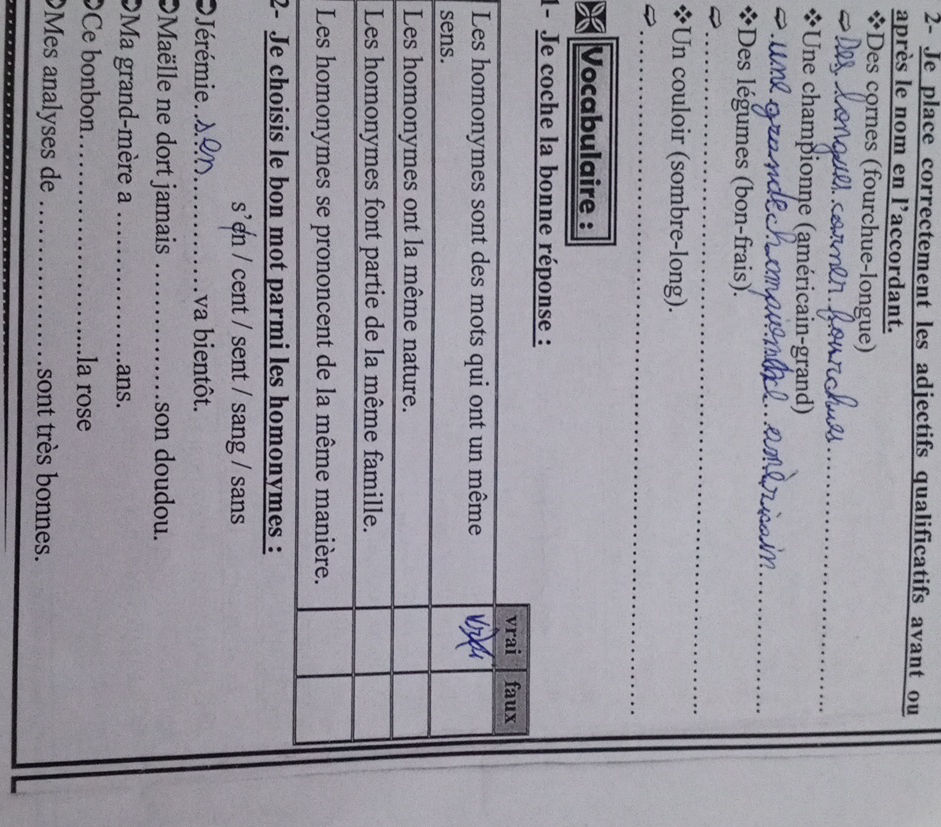 2- Je place correctement les adjectifs qualificatifs avant ou
après le nom en l'accordant.
❖Des cornes (fourchue-longue)
⇨Des longues cornes fourchues
❖Une championne (américain-grand)
⇨une grande
❖Des légumes (bon-frais).
⇨
❖Un couloir (sombre-long).
⇨
Vocabulaire :
1- Je coche la bonne réponse :
vrai faux
Les homonymes sont des mots qui ont un même vrai
sens.
Les homonymes ont la même nature.
Les homonymes font partie de la même famille.
Les homonymes se prononcent de la même manière.
2- Je choisis le bon mot parmi les homonymes :
s'en / cent / sent / sang / sans
Jérémie. s'en. va bientôt.
Maëlle ne dort jamais ............ son doudou.
Ma grand-mère a ............ans.
Ce bonbon............la rose
Mes analyses de ............sont très bonnes.